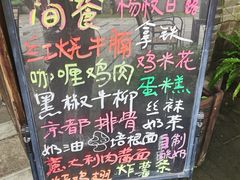 简餐 杨枝甘露
红烧牛腩 拿铁
咖喱鸡肉 鸡米花
黑椒牛柳 蛋糕
京都排骨 丝袜奶茶
奶油培根面 自制酸奶
意大利肉酱面
炸薯条